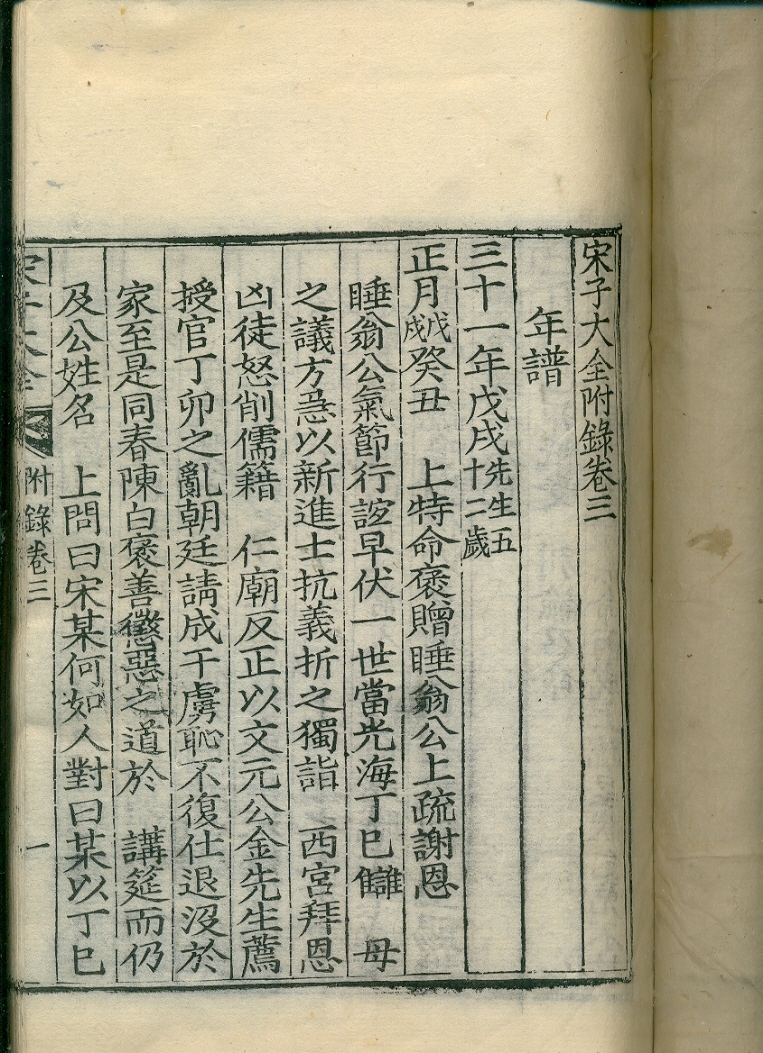 宋子大全附錄卷三
年譜
三十一年戊戌先生五
十二歲
正月戊戌癸丑 上特命褒贈睡翁公上疏謝恩
睡翁公氣節行誼早伏一世當光海丁巳讎 母
之議方急以新進士抗義折之獨詣 西宮拜恩
凶徒怒削儒籍 仁廟反正以文元公金先生薦
授官丁卯之亂朝廷請成于虜恥不復仕退沒於
家至是同春陳白褒善懲惡之道於 講筵而仍
及公姓名 上問曰宋某何如人對曰某以丁巳
宋子大全
附錄卷三
一